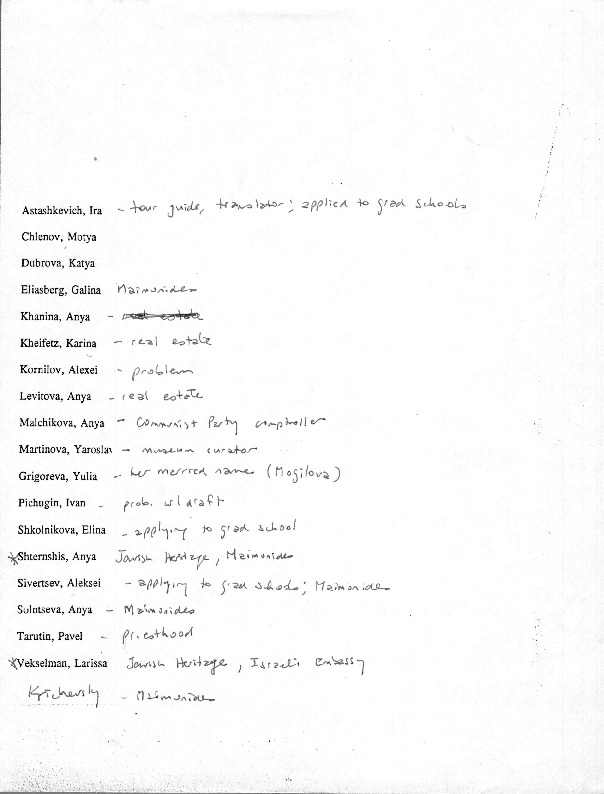 Astashkevich, Ira - tour guide, translator; applied to grad schools
Chlenov, Motya
Dubrova, Katya
Eliasberg, Galina Maimonides
Khanina, Anya - real estate
Kheifetz, Karina - real estate
Kornilov, Alexei - problem
Levitova, Anya - real estate
Malchikova, Anya - Communist Party comptroller
Martinova, Yaroslav - museum curator
Grigoreva, Yulia - her married name (Mogilova)
Pichugin, Ivan - prob. w/ draft
Shkolnikova, Elina - applying to grad school
*Shternshis, Anya Jewish Heritage, Maimonides
Sivertsev, Aleksei - applying to grad schools; Maimonides
Solntseva, Anya - Maimonides
Tarutin, Pavel - priesthood
*Vekselman, Larissa Jewish Heritage, Israeli Embassy
Krichevsky - Maimonides